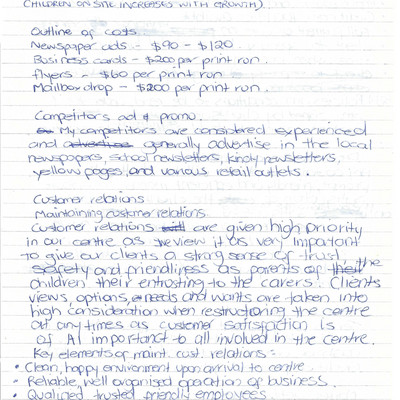 CHILDREN ON SITE INCREASES WITH GROWTH).
Outline of costs
Newspaper ads - $90 - $120
Business cards - $200 per print run.
flyers - $60 per print run
Mailbox drop - $200 per print run.
Competitors ad & promo.
My competitors are considered experienced
and advertise generally advertise in the local
newspapers, school newsletters, kindy newsletters,
yellow pages, and various retail outlets.
Customer relations
Maintaining customer relations
Customer relations will are given high priority
in our centre as we view it as very important
to give our clients a strong sense of trust,
safety and friendliness as parents of their the
children their entrusting to the carers. Clients
views, options, needs and wants are taken into
high consideration when restructuring the centre
at any times as customer satisfaction is
of A1 importance to all involved in the centre.
Key elements of maint. cust. relations:-
• Clean, happy environment upon arrival to centre
• Reliable, well organised operation of business.
• Qualified trusted friendly employees